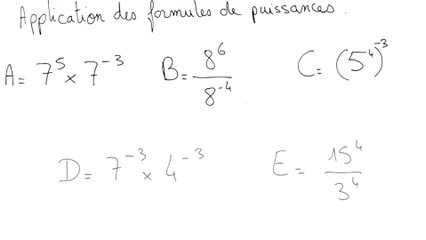 Application des formules de puissances.
A = 7⁵ × 7⁻³ B = 8⁶/8⁻⁴ C = (5⁴)⁻³
D = 7⁻³ × 4⁻³ E = 15⁴/3⁴